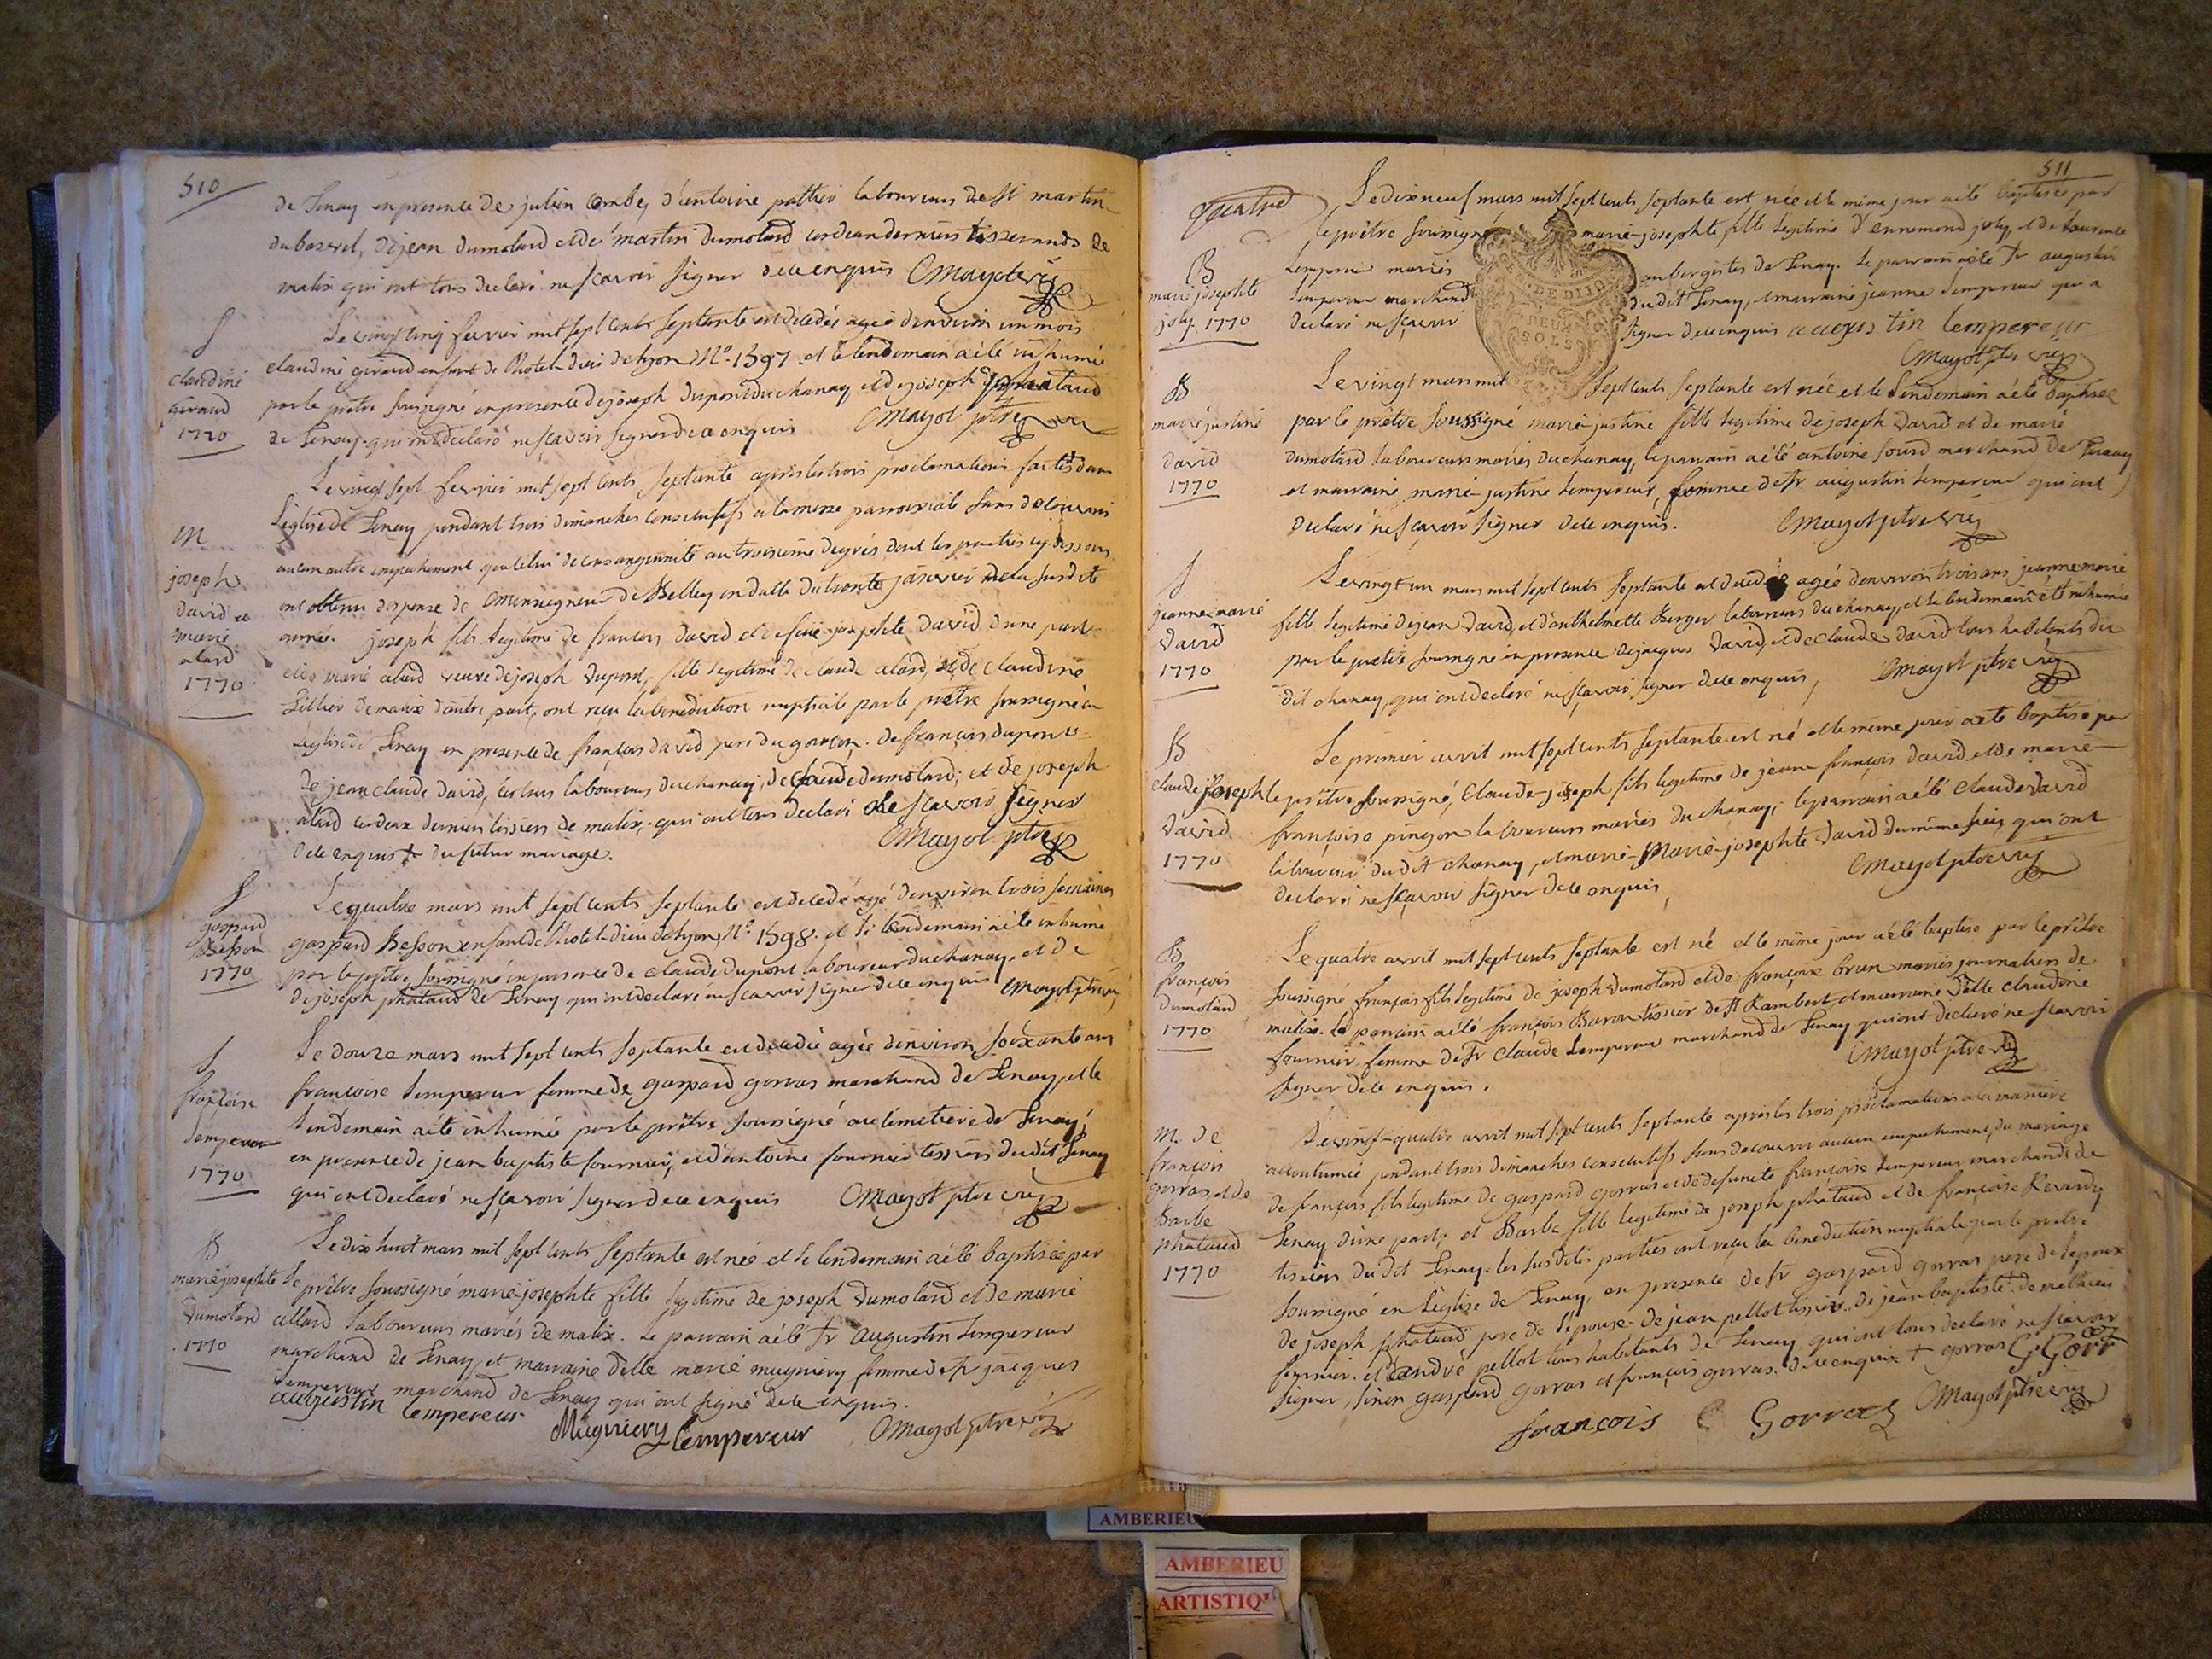 510
de Tenay en presence de julien Combey d'entoine pottier laboureurs de st martin
dubazerel, de jean dumolard et de martin dumolard tisserands de
malix qui ont tous declaré ne sçavoir signer de ce enquis Mayot
S
claudine
giraud
1770
Le vingt cinq fevrier mil sept cents septante est decedée agée d'environ un mois
claudine giraud enfant de l'hotel-dieu de lyon N.o 1397. et le lendemain a été inhumée
par le prêtre soussigné en presence de joseph dupont du chanay et de joseph phataud
de Tenay qui ont declaré ne sçavoir signer de ce enquis Mayot ptre
M
joseph
david et
marie
alard
1770
Le vingt sept fevrier mil sept cents septante après les trois proclamations faites dans
l'église de Tenay pendant trois dimanches consecutifs a la messe parroissiale sans decouvrir
aucun autre empechement que celui de consanguinité au troisieme degrés dont les parties
ont obtenu dispense de Monseigneur de Belley en datte du trente janvier de la susdite
année. joseph fils legitime de francois david et de feüe josephte david d'une part
et marie alard veuve de joseph dupont, fille legitime de claude alard, et de claudine
Tillier de malix d'autre part, ont reçu la benediction nuptiale par le prêtre soussigné en
l'église de Tenay en presence de françois david pere du garçon. de françois dupont
de jean claude david, laboureurs du chanay; de claude dumolard; et de joseph
alard tissiers de malix, qui ont tous declaré ne sçavoir signer
de ce enquis + du futur mariage. Mayot ptre
S
gaspard
Besson
1770
Le quatre mars mil sept cents septante est decedé agé d'environ trois semaines
gaspard Besson enfant de l'hotel-dieu de lyon N.o 1398. et le lendemain a été inhumé
par le prêtre soussigné en presence de claude dupont laboureur du chanay. et de
de joseph phataud de Tenay qui ont declaré ne sçavoir signer de ce enquis Mayot ptre
S
françoise
Lempereur
1770
Le douze mars mil sept cents septante est decedée agée d'environ soixante ans
françoise Lempereur femme de gaspard gorras marchand de Tenay, et le
lendemain a été inhumée par le prêtre soussigné au cimetiere de Tenay,
en presence de jean baptiste fournier, et d'antoine fournier tissiers du dit Tenay
qui ont declaré ne sçavoir signer de ce enquis Mayot ptre vic
B
marie josephte
dumolard
1770
Le dix huit mars mil sept cents septante est née et le lendemain a été baptisée par
le prêtre soussigné marie-josephte fille legitime de joseph dumolard et de marie
allard laboureurs mariés de malix. Le parrain a été Sr augustin Lempereur
marchand de Tenay, et marraine delle marie mugniery femme de Sr jacques
Lempereur marchand de Tenay qui ont signé de ce enquis.
augustin Lempereur
Mugniery Lempereur Mayot ptre vic
511
Quatre
B
marie josephte
joly. 1770
Le dix neuf mars mil sept cents septante est née et le même jour a été baptisée par
le prêtre soussigné marie-josephte fille legitime d'ennemond joly, et de laurence
Lempereur mariés aubergistes de Tenay. Le parrain a été Sr augustin
Lempereur marchand du dit Tenay, et marraine jeanne Lempereur qui a
declaré ne sçavoir signer de ce enquis augustin lempereur
Mayot ptre vic
DE DIJON
DEUX
SOLS
B
marie justine
david
1770
Le vingt mars mil sept cents septante est née et le lendemain a été baptisée
par le prêtre soussigné marie-justine fille legitime de joseph david et de marie
dumolard laboureurs mariés du chanay, le parrain a été antoine sourd marchand de Tenay
et marraine marie-justine Lempereur, femme de Sr augustin Lempereur qui ont
declaré ne sçavoir signer de ce enquis. Mayot ptre vic
S
jeanne-marie
david
1770
Le vingt un mars mil sept cents septante est decedée agée d'environ trois ans jeanne marie
fille legitime de jean david, et d'anthelmette Berger laboureurs du chanay, et le lendemain a été inhumée
par le prêtre soussigné en presence de jacques david, et de claude david tous habitants du
dit chanay, qui ont declaré ne sçavoir signer de ce enquis, Mayot ptre vic
B
claude joseph
david
1770
Le premier avril mil sept cents septante est né et le même jour a été baptisé par
le prêtre soussigné, claude-joseph fils legitime de jean françois david, et de marie-
françoise pingon laboureurs mariés du chanay; le parrain a été claude david
laboureur du dit chanay, et marie-marie-josephte david du même lieu, qui ont
declaré ne sçavoir signer de ce enquis, Mayot ptre vic
B
françois
dumolard
1770
Le quatre avril mil sept cents septante est né et le même jour a été baptisé par le prêtre
soussigné françois fils legitime de joseph dumolard et de françoise brun mariés journaliers de
malix. Le parrain a été françois Baron tissier de St Rambert, et marraine delle claudine
fournier femme de Sr claude Lempereur marchand de Tenay qui ont declaré ne sçavoir
signer de ce enquis. Mayot ptre vic
M. de
françois
gorras, et de
Barbe
phataud
1770
Le vingt-quatre avril mil sept cents septante après les trois proclamations a la maniere
accoutumée pendant trois dimanches consecutifs sans decouvrir aucun empechement, du mariage
de françois fils legitime de gaspard gorras et de defunte françoise Lempereur marchands de
Tenay d'une part, et Barbe fille legitime de joseph phataud et de françoise Reverdy
tissiers du dit Tenay. les susdites parties ont reçu la benediction nuptiale par le prêtre
soussigné en l'église de Tenay, en presence de Sr gaspard gorras pere de l'epoux
de joseph phataud pere de l'epouse. de jean pellot tissier. de jean baptiste. de mathieu
fournier. et d'andré pellot tous habitants de Tenay, qui ont tous declaré ne sçavoir
signer, sinon gaspard gorras et françois gorras. de ce enquis + gorras G Gorr
françois Gorras Mayot ptre vic
AMBERIEU
AMBERIEU
ARTISTIQ